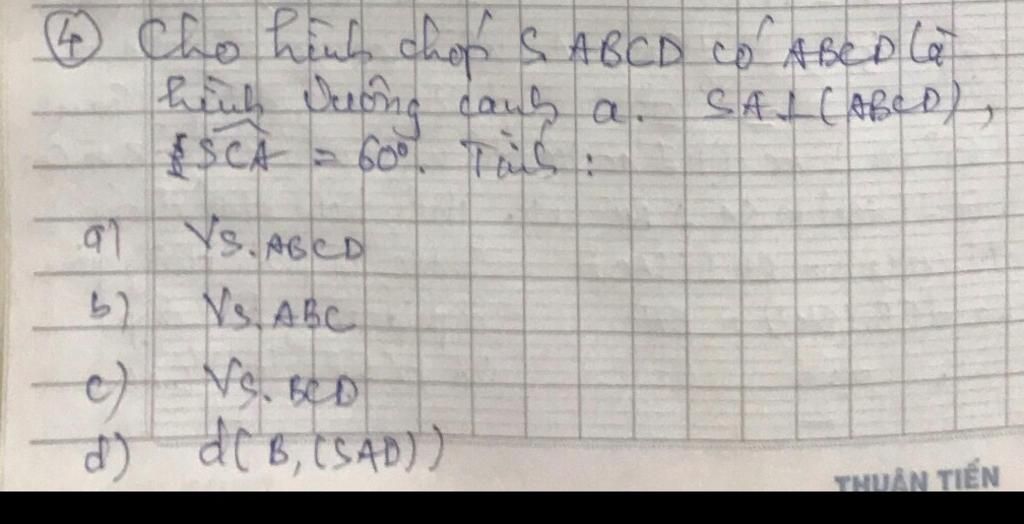 ④ Cho hình chóp S ABCD có ABCD là
hình vuông cạnh a. SA⊥(ABCD),
SCA = 60°. Tính :
a) VS.ABCD
b) VS.ABC
c) VS.BCD
d) d(B,(SAD))
THUẬN TIẾN